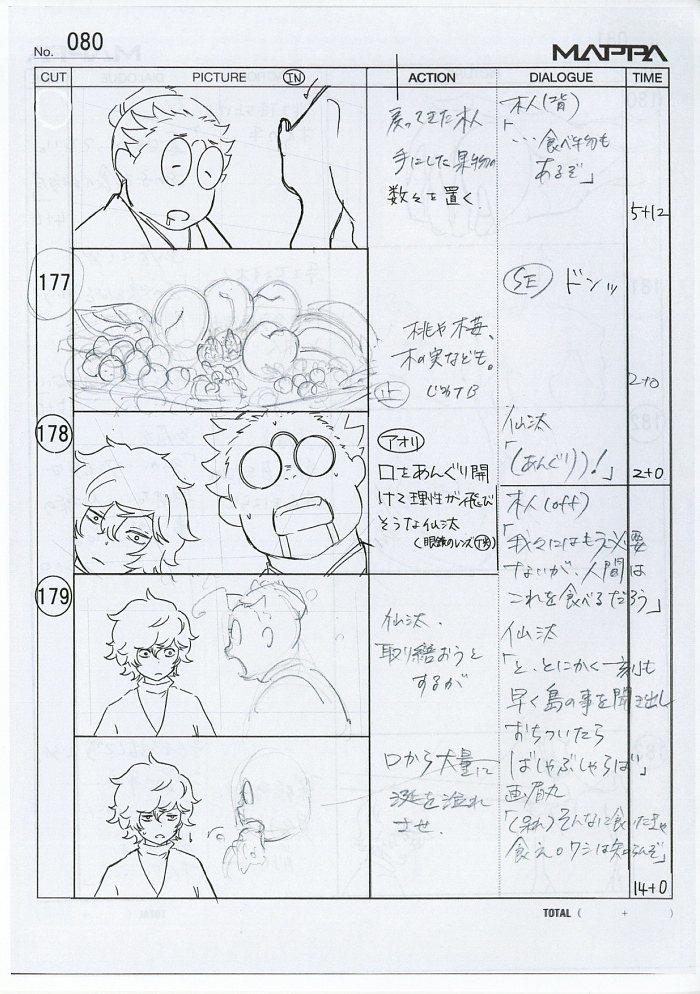 No. 080
MAPPA
CUT PICTURE ACTION DIALOGUE TIME
IN
戻ってきた木人
手にした果物の
数々を置く。
木人(背)
「…食べ物も
あるぞ」
5+12
177
桃や苺、
木の実なども。
止
SE ドンッ
2+0
178
アオリ
口をあんぐり開
けて理性が飛び
そうな仙汰
(眼鏡のレンズ
仙汰
「(あんぐり)!」
2+0
木人(off)
「我々にはもう必要
ないが、人間は
これを食べるだろう」
179
仙汰、
取り繕おうと
するが
仙汰
「と、とにかく一刻も
早く島の事を聞き出し
おちついたら
ばしゃぶしゃらば」
口から大量に
涎を溢れ
させ。
画眉丸
「(呆れ)そんなに食いたきゃ
食え。ワシは知らんぞ」
14+0
TOTAL ( + )